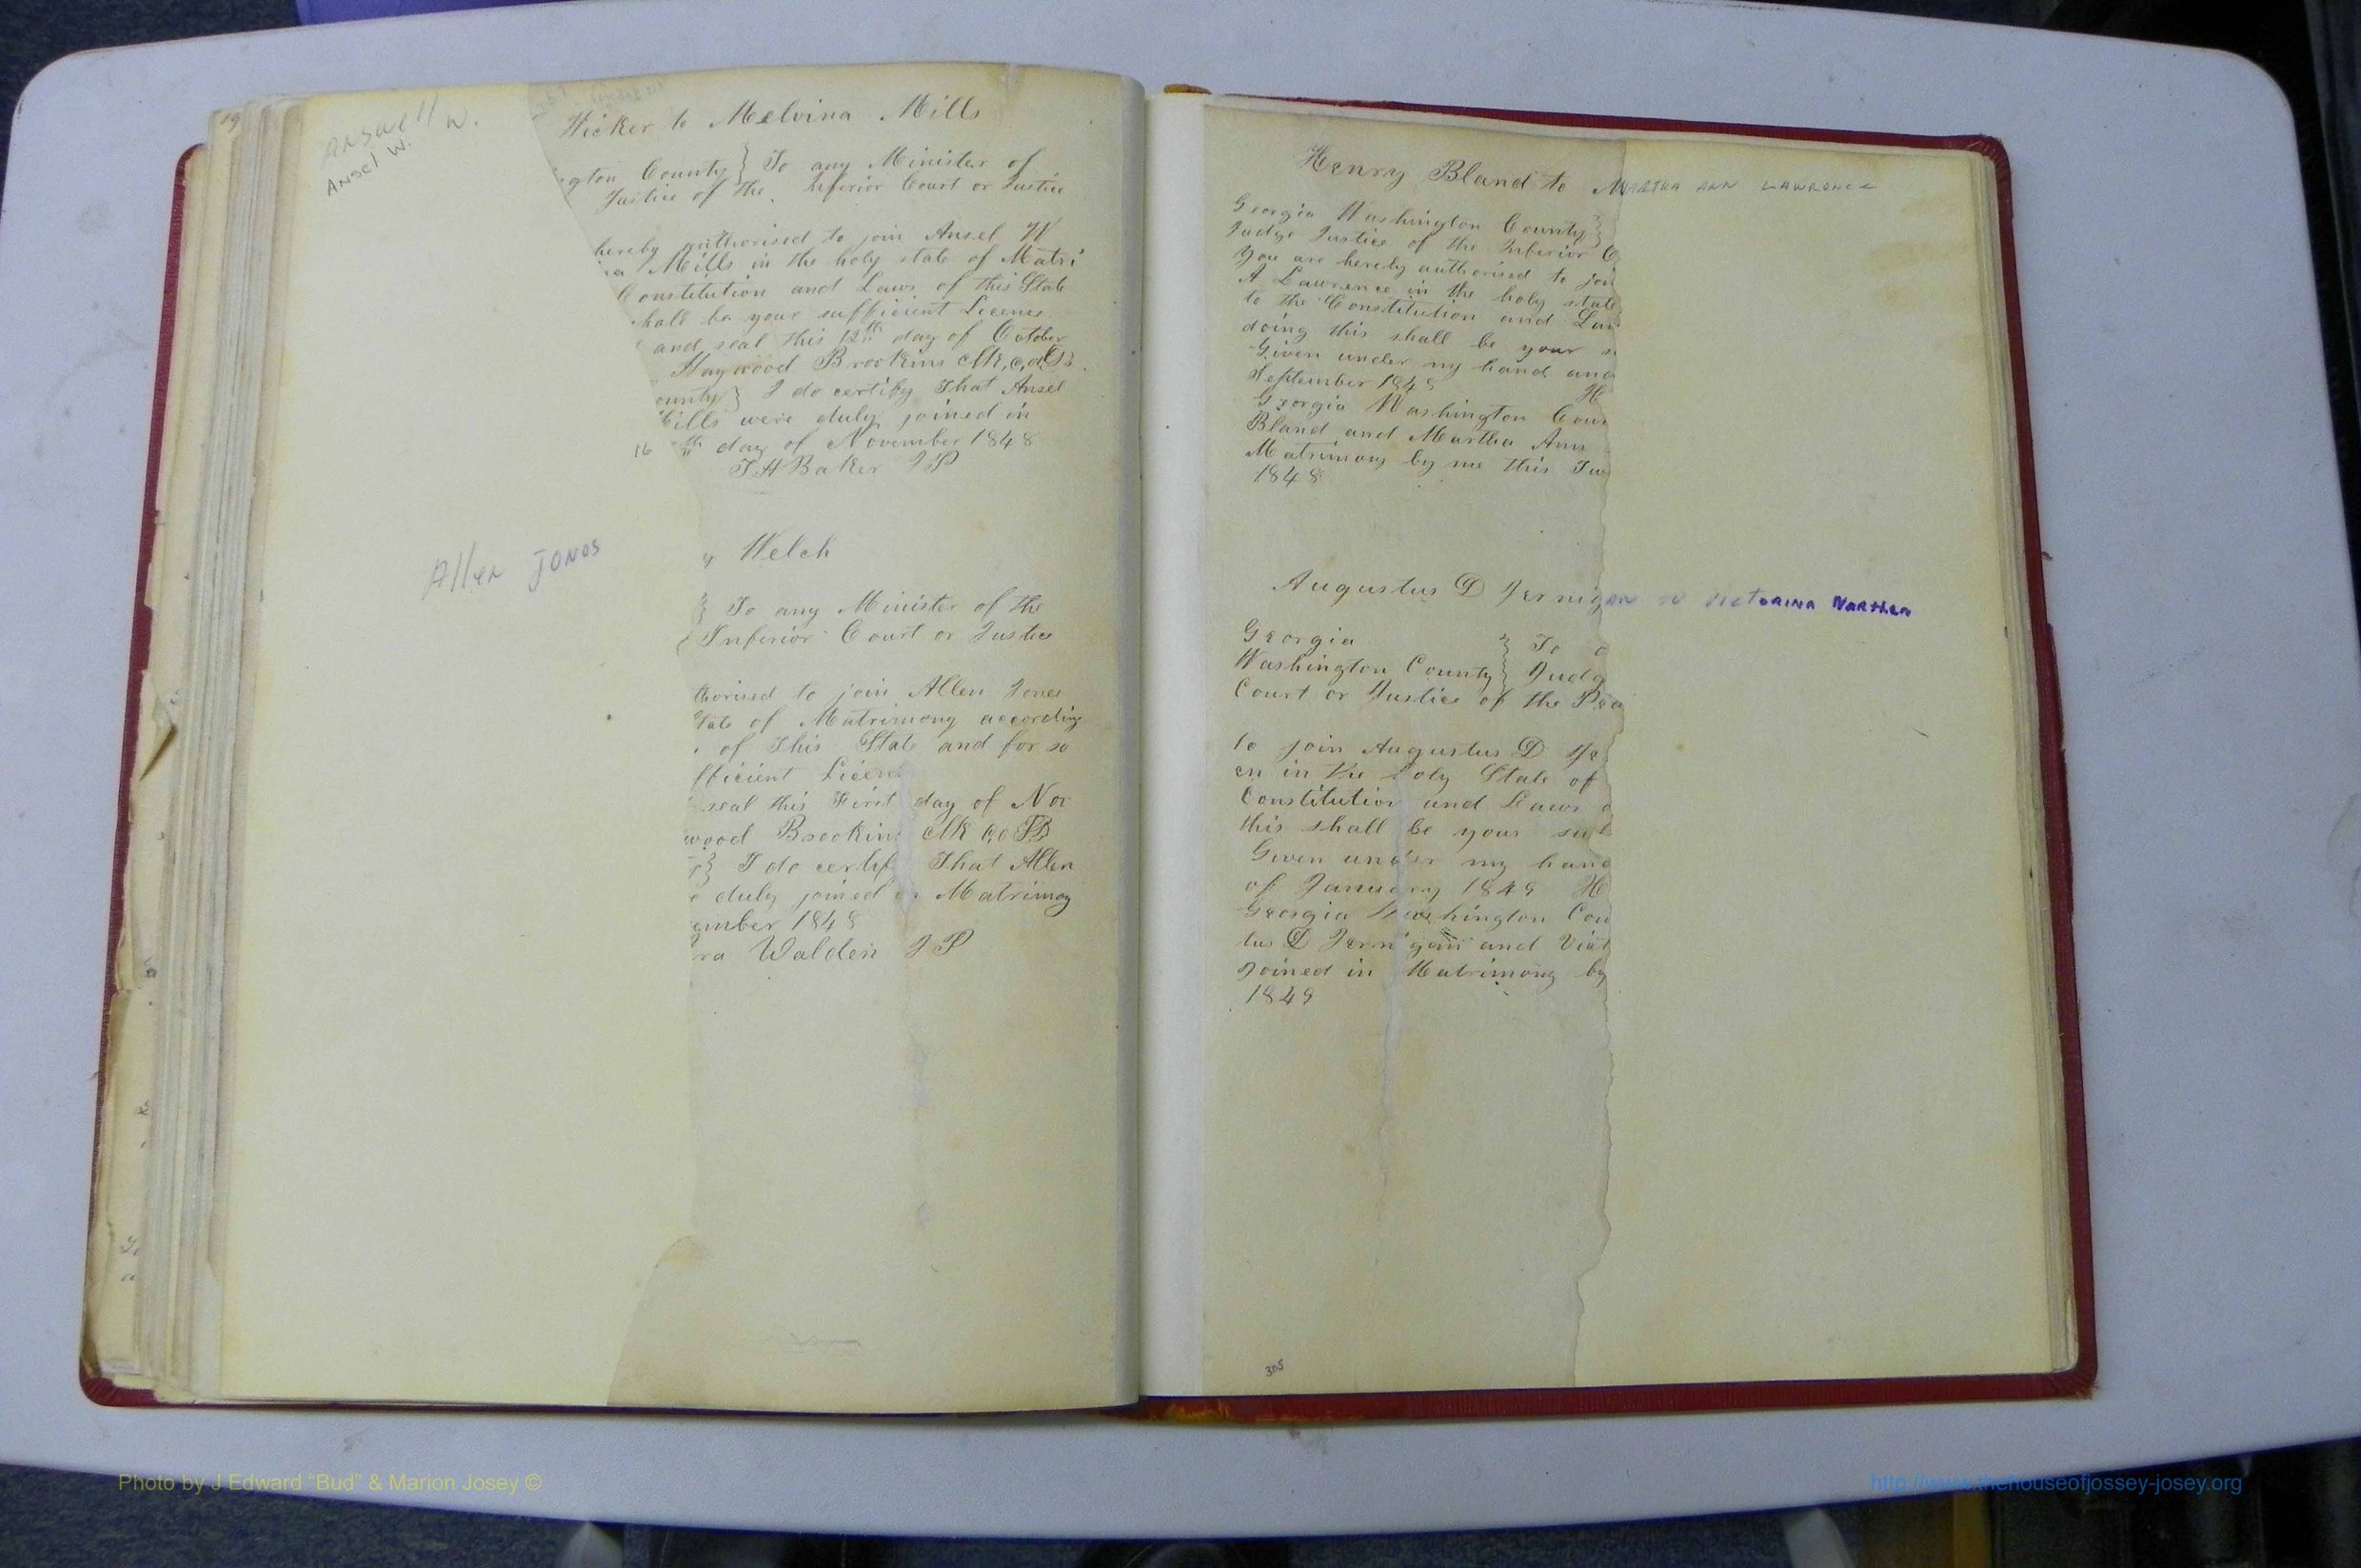 Answell W.
Ansel W.
Wicker to Melvina Mills
gton County } To any Minister of
Justice of the Inferior Court or Justice
hereby authorised to join Ansel W
Mills in the holy state of Matri
Constitution and Laws of this State
hall be your sufficient Licence
and seal this 12th day of October
Haywood Brookins Clk, c,o,
ounty } I do certify That Ansel
ills were duly joined in
16 th day of November 1848
T H Baker J P
Allen Jones
y Welch
} To any Minister of the
Inferior Court or Justice
thorised to join Allen Jones
tate of Matrimony according
of This State and for so
fficient Licen
seal this First day of Nov
wood Brookins Clk C,O
} I do certify That Allen
duly joined in Matrimoy
ember 1848
ra Walden J P
Henry Bland to Martha Ann Lawrence
Georgia Washington County }
Judge Justice of the Inferior C
You are hereby authorised to join
A Lawrence in the holy state
to the Constitution and Law
doing this shall be your s
Given under my hand and
September 1848 H
Georgia Washington Coun
Bland and Martha Ann
Matrimony by me this Tw
1848
Augustus D Jernigan to Victorina Narthen
Georgia } To a
Washington County } Judg
Court or Justice of the Pea
to join Augustus D Je
en in the holy State of
Constitution and Laws o
this shall be your suf
Given under my hand
of January 1849 H
Georgia Washington Cou
tus D Jernigan and Vict
Joined in Matrimony by
1849
305
Photo by J Edward “Bud” & Marion Josey ©
http://www.thehouseofjossey-josey.org